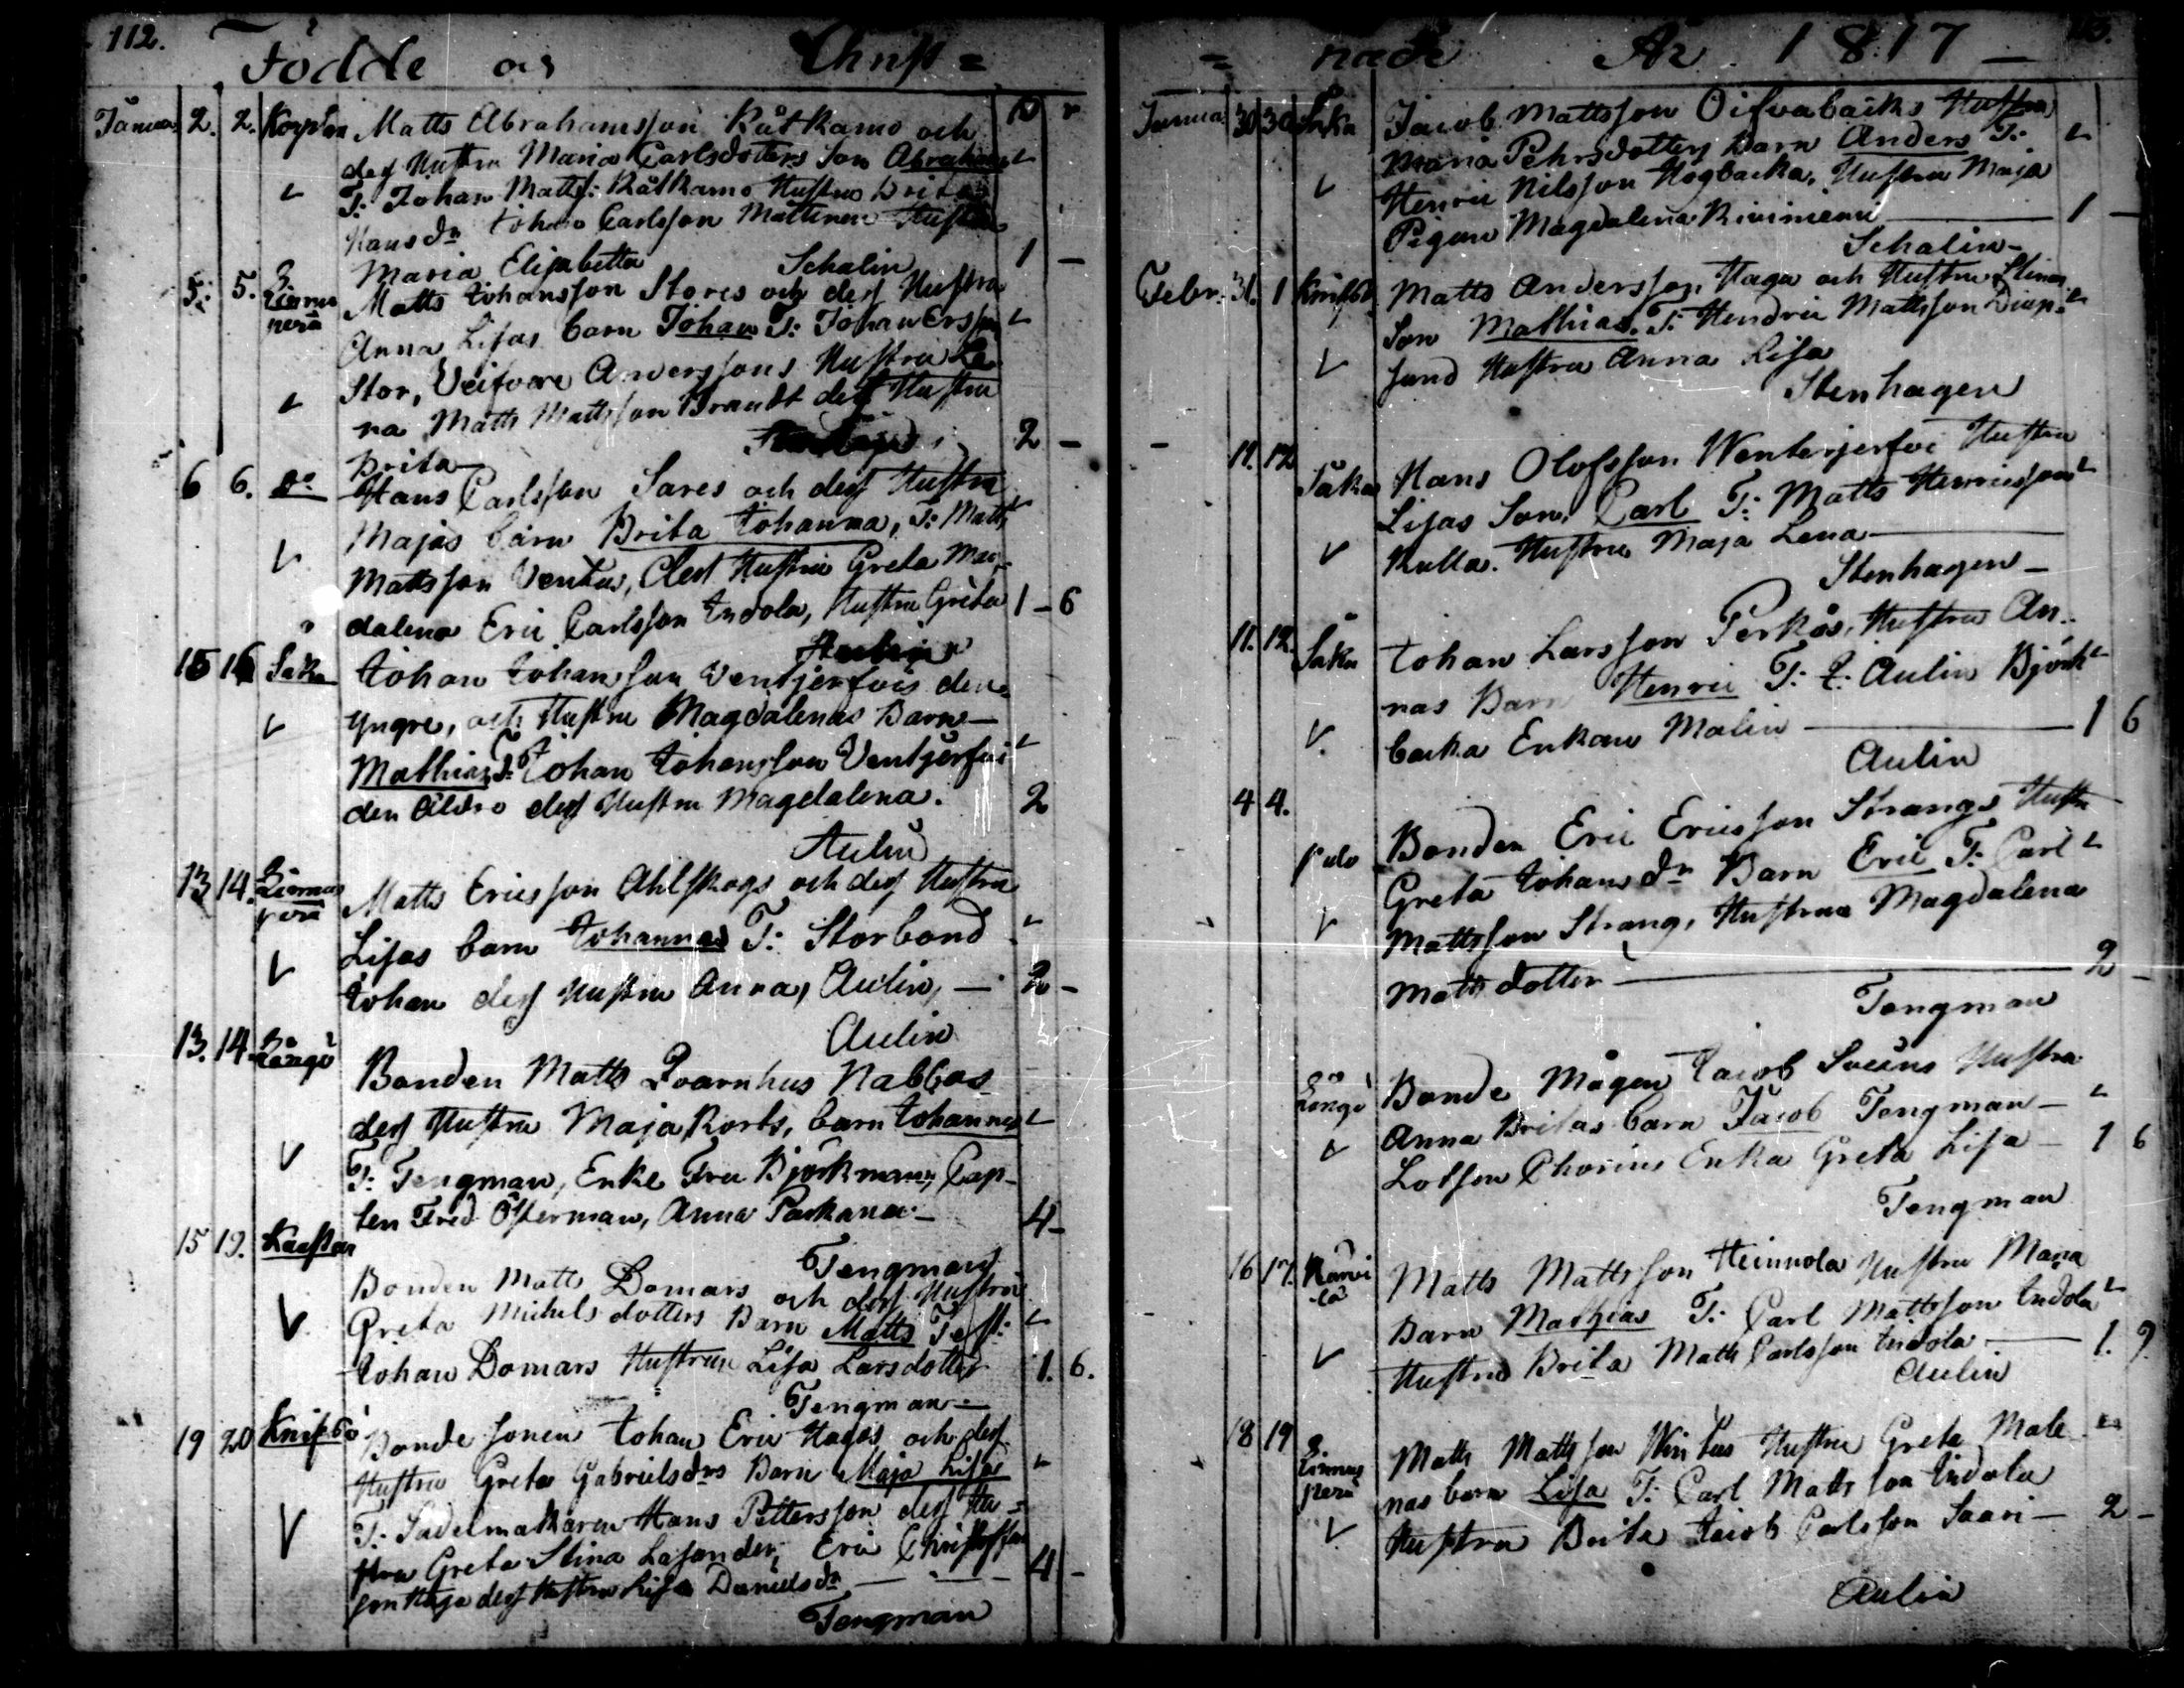 112.
Födde och Christ=
Janua 2. 2. Matts Abrahamsson Råtkamo och
dess Hustru Maria Carlsdotters Son Abraham
T: Johan Matts: Råtkamo Hustru Brita
Hans dr Johan Carlsson Mattinen Hustru
Maria Elisabetha 1 -
Schalin
5. 5. Linnus perä Matts Johansson Stores och dess Hustru
Anna Lisas barn Johan T: Johan Ersson
Stor, Anderssons Hustru Le
na Matts Mattsson Brandt dess Hustru
Brita 2 -
6 6. Do Hans Carlsson Sares och dess Hustru
Majas barn Brita Johanna, T: Matts
Mattsson Ventus, dess Hustru Greta Mag
dalena Eric Carlsson Indola, Hustru Greta 1 - 6
15 16 Såka Johan Johansson Ventjerfvis den
yngre, och Hustru Magdalenas Barn
Mathias T: Johan Johansson Ventjerfvi
den äldre dess Hustru Magdalena. 2
Aulin
13 14. Linnus perä Matts Ericsson Ahlskogs och dess Hustru
Lisas barn Johannes T: Storbond
Johan dess Hustru Anna, Aulin, - 2 -
Aulin
13. 14. Långö Bonden Matts Qvarnhus Nabbas
dess Hustru Maja Korts, barn Johannes
T: Tengman, Enke Fru Björkman, Cap-
ten Fred Österman, Anna Parkana - 4 -
Tengman
15 19. Kaustar Bonden Matts Domars och dess Hustru
Greta Michelsdotters Barn Matts Test:
Johan Domars Hustrun Lisa Larsdotter 1. 6.
Tengman
19 20 Knifsö Bonde sonen Johan Eric Hagas och dess
Hustru Greta Gabrielsdrs Barn Maja Lisa
T: Sadelmakaren Hans Pettersson dess Hu=
stru Greta Stina Lasander, Eric Christoffers
son Haga dess Hustru Lisa Danielsdr - 4 -
Tengman
= nade År 1817 -
Janua 30 30 Såka Jacob Mattsson Oifvabacks Hustru
Maria Pehrsdotters Barn Anders T:
Henric Nilsson Högbacka, Hustru Maja
Pigan Magdalena 1 -
Schalin
Febr. 31. 1 Knifsö Matts Andersson Haga och Hustru Stinas
Son Mathias. T: Hendric Mattsson Diup
sund Hustru Anna Lisa
Stenhagen
11. 12 Såka Hans Olofsson Wenterjerfvi Hustru
Lisas Son Carl T: Matts Henricsson
Kulla. Hustru Maja Lena
Stenhagen
11. 12. Såka Johan Larsson Perkas, Hustru An
nas Barn Henric T: J: Aulin Björk
backa Enkan Malin 1 6
Aulin
4 4. Palo Bonden Eric Ericsson Strangs Hustr
Greta Johansdr Barn Eric T: Carl
Mattsson Strang, Hustrun Magdalena
Mattsdotter 2 -
Tengman
Långö Bonde Mågen Jacob Sveins Hustru
Anna Britas barn Jacob Tengman
Lotsen Chorins Enka Greta Lisa - 1 6
Tengman
16 17. Matts Mattsson Heinnola Hustru Maria
Barn Mathias T: Carl Mattsson Indola
Hustru Brita Matts Carlsson Indola 1. 9.
Aulin
18 19 Linnus perä Matts Mattsson Wintus Hustru Greta Male
nas barn Lisa T: Carl Mattsson Indola
Hustru Brita Jacob Carlsson Saari - 2 -
Aulin